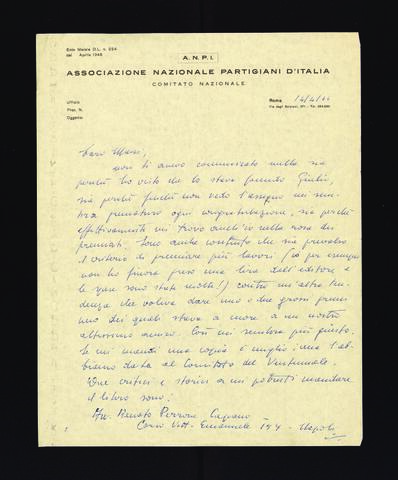 Ente Morale D.L. n. 224
del Aprile 1945
A.N.P.I.
ASSOCIAZIONE NAZIONALE PARTIGIANI D'ITALIA
COMITATO NAZIONALE
Ufficio
Prot. N.
Oggetto:
Roma
Caro
non ti avevo comunicato nulla sia
perché ho visto che lo stava facendo Giulio,
sia perché finché non vedo l'assegno mi sem-
bra prematura ogni congratulazione, sia perché
effettivamente mi trovo anch'io nella rosa dei
premiati. Sono anche contento che sia prevalso
il criterio di premiare più lavori (io per esempio
non ho finora preso una lira dall'editore e
le spese sono state molte!) contro un'altra ten-
denza che voleva dare uno o due grossi premi
uno dei quali stava a cuore a un nostro
altissimo amico. Così mi sembra più giusto.
Se mi mandi una copia è meglio: una l'ab-
biamo data al Comitato del Ventennale.
Due critici e storici a cui potresti mandare
il libro sono:
Avv. Renato Perrone Capano
Corso Vitt. Emanuele 194 - Napoli